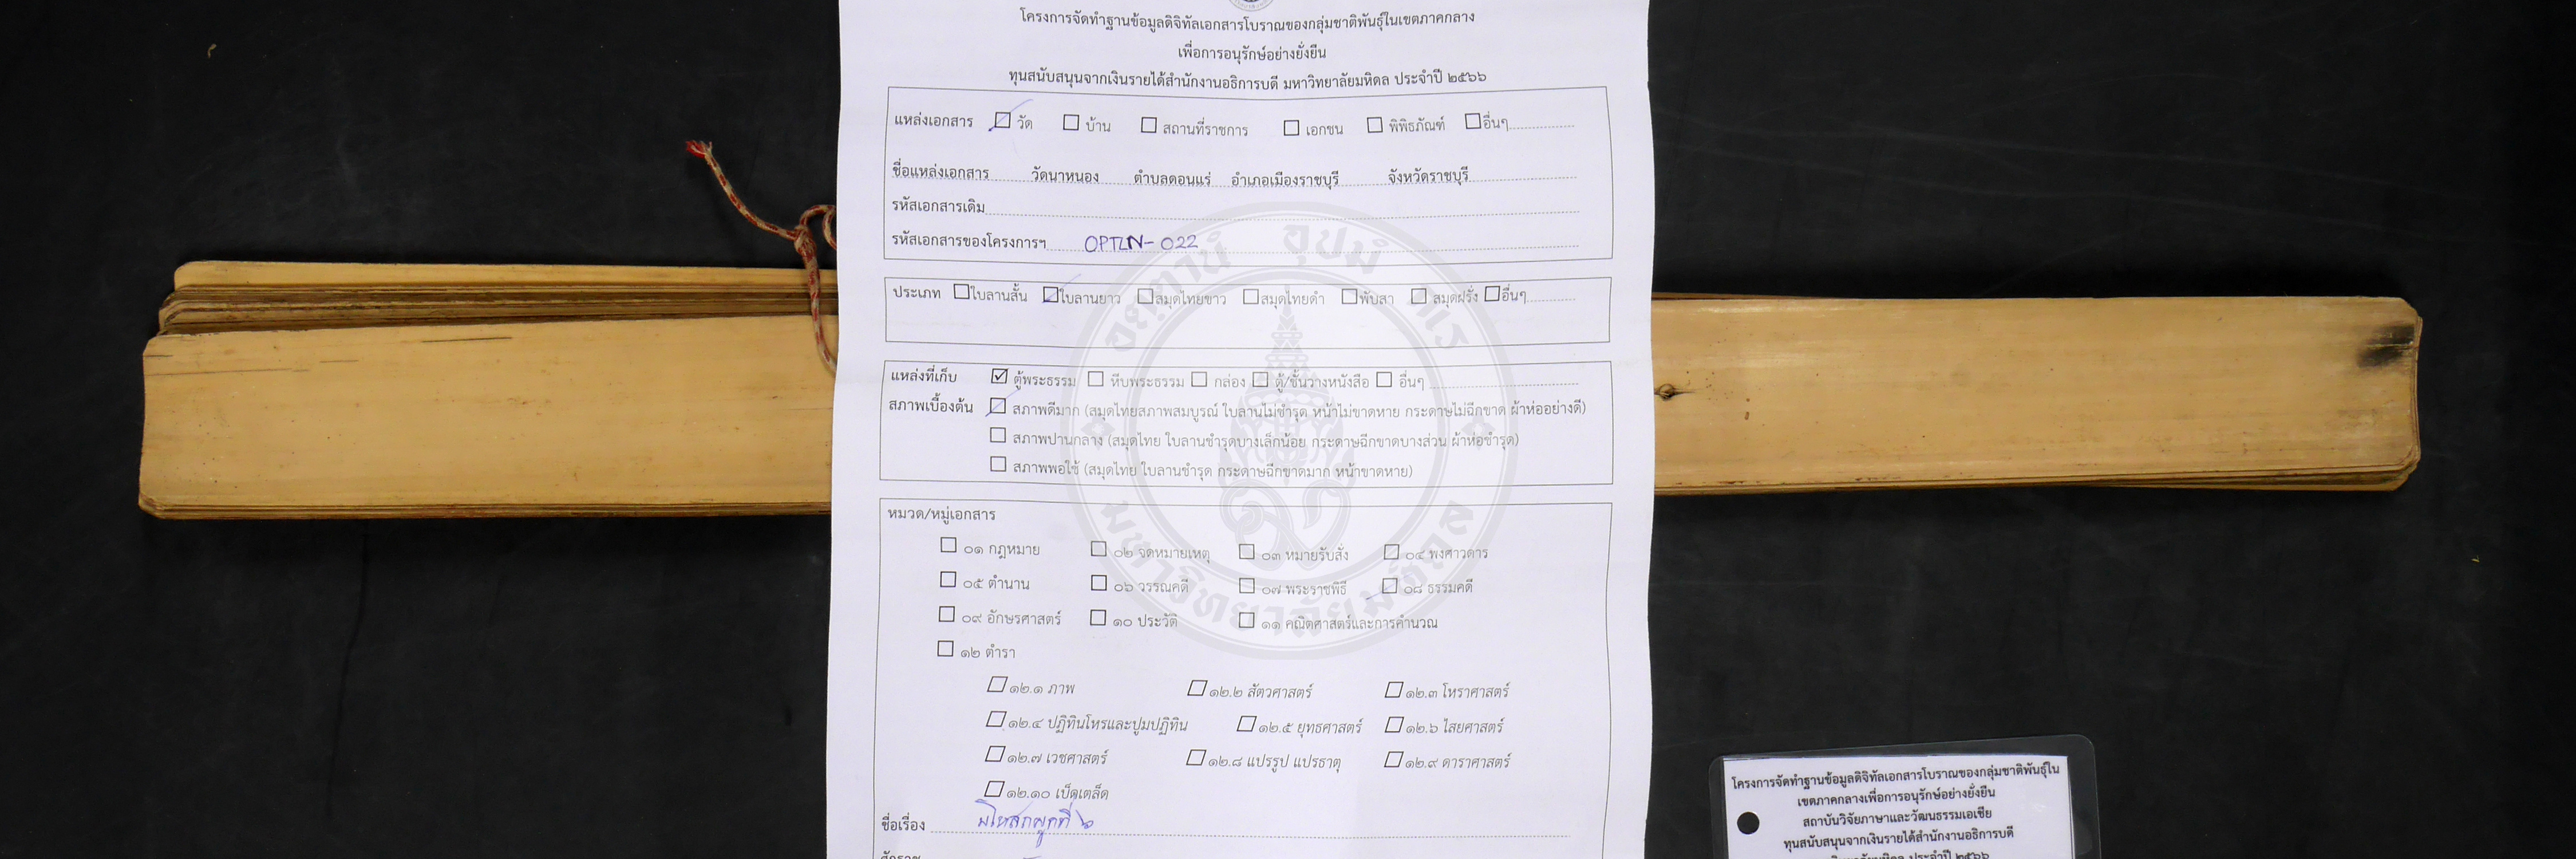 โครงการจัดทำฐานข้อมูลดิจิทัลเอกสารโบราณของกลุ่มชาติพันธุ์ในเขตภาคกลาง
เพื่อการอนุรักษ์อย่างยั่งยืน
ทุนสนับสนุนจากเงินรายได้สำนักงานอธิการบดี มหาวิทยาลัยมหิดล ประจำปี ๒๕๖๖
แหล่งเอกสาร วัด บ้าน สถานที่ราชการ เอกชน พิพิธภัณฑ์ อื่นๆ
ชื่อแหล่งเอกสาร วัดนาหนอง ตำบลดอนแร่ อำเภอเมืองราชบุรี จังหวัดราชบุรี
รหัสเอกสารเดิม
รหัสเอกสารของโครงการฯ OPTLN-022
ประเภท ใบลานสั้น ใบลานยาว สมุดไทยขาว สมุดไทยดำ พับสา สมุดฝรั่ง อื่นๆ
แหล่งที่เก็บ ตู้พระธรรม หีบพระธรรม กล่อง ตู้/ชั้นวางหนังสือ อื่นๆ
สภาพเบื้องต้น สภาพดีมาก (สมุดไทยสภาพสมบูรณ์ ใบลานไม่ชำรุด หน้าไม่ขาดหาย กระดาษไม่ฉีกขาด ผ้าห่ออย่างดี)
สภาพปานกลาง (สมุดไทย ใบลานชำรุดบางเล็กน้อย กระดาษฉีกขาดบางส่วน ผ้าห่อชำรุด)
สภาพพอใช้ (สมุดไทย ใบลานชำรุด กระดาษฉีกขาดมาก หน้าขาดหาย)
หมวด/หมู่เอกสาร
๐๑ กฎหมาย ๐๒ จดหมายเหตุ ๐๓ หมายรับสั่ง ๐๔ พงศาวดาร
๐๕ ตำนาน ๐๖ วรรณคดี ๐๗ พระราชพิธี ๐๘ ธรรมคดี
๐๙ อักษรศาสตร์ ๑๐ ประวัติ ๑๑ คณิตศาสตร์และการคำนวณ
๑๒ ตำรา
๑๒.๑ ภาพ ๑๒.๒ สัตวศาสตร์ ๑๒.๓ โหราศาสตร์
๑๒.๔ ปฏิทินโหรและปูมปฏิทิน ๑๒.๕ ยุทธศาสตร์ ๑๒.๖ ไสยศาสตร์
๑๒.๗ เวชศาสตร์ ๑๒.๘ แปรรูป แปรธาตุ ๑๒.๙ ดาราศาสตร์
๑๒.๑๐ เบ็ดเตล็ด
ชื่อเรื่อง มโหสถผูกที่ ๖
อตฺตานํ อุปมํ กเร
มหาวิทยาลัยมหิดล
โครงการจัดทำฐานข้อมูลดิจิทัลเอกสารโบราณของกลุ่มชาติพันธุ์ใน
เขตภาคกลางเพื่อการอนุรักษ์อย่างยั่งยืน
สถาบันวิจัยภาษาและวัฒนธรรมเอเชีย
ทุนสนับสนุนจากเงินรายได้สำนักงานอธิการบดี